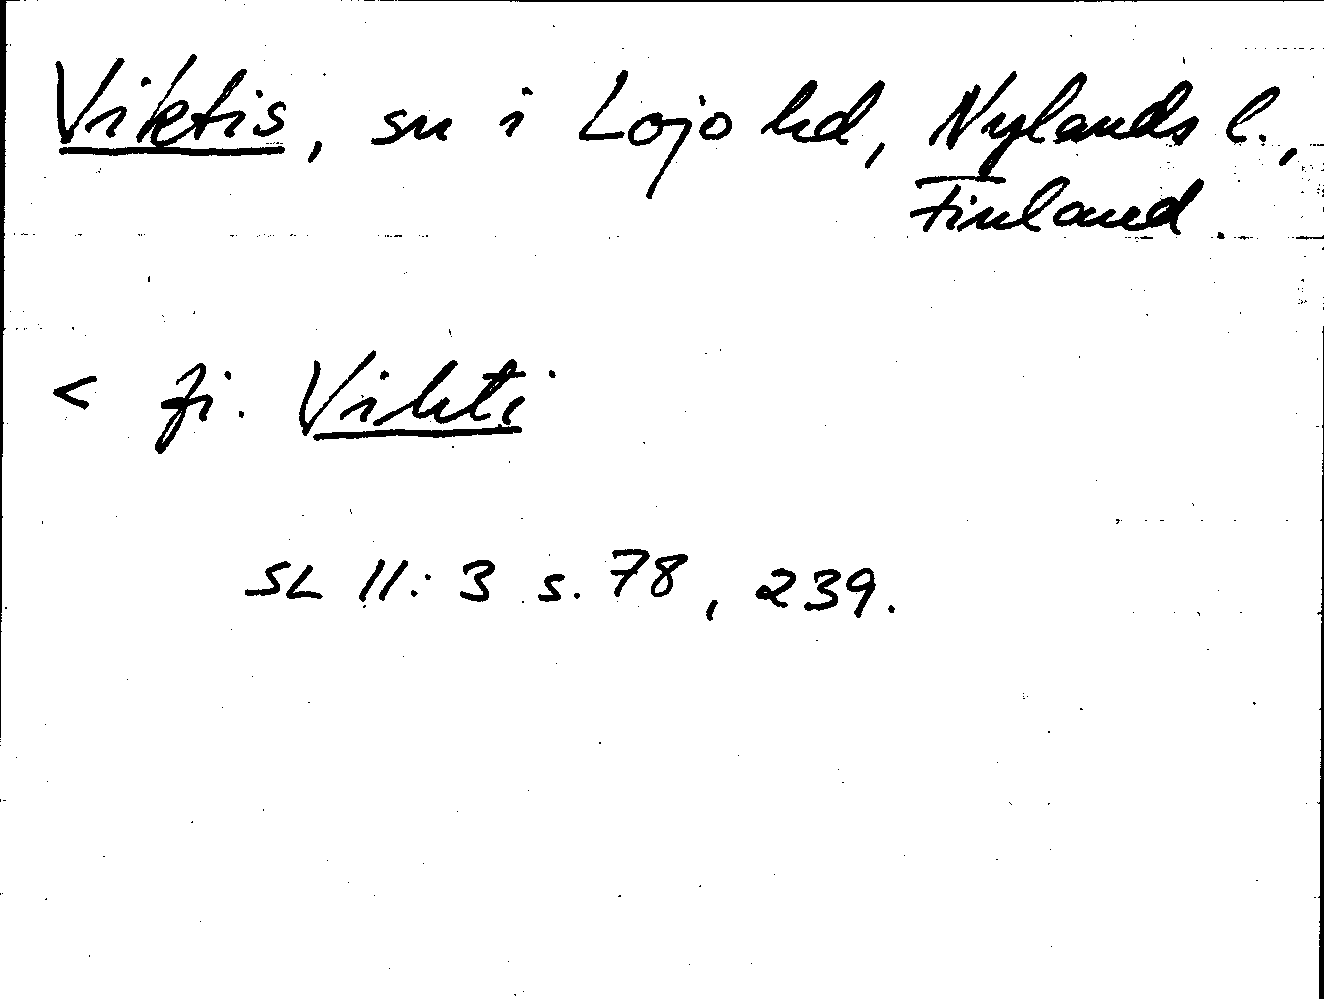 Viktis, sn i Lojo hd, Nylands l.,
Finland.
< fi. Vihti
SL 11:3 s. 78, 239.